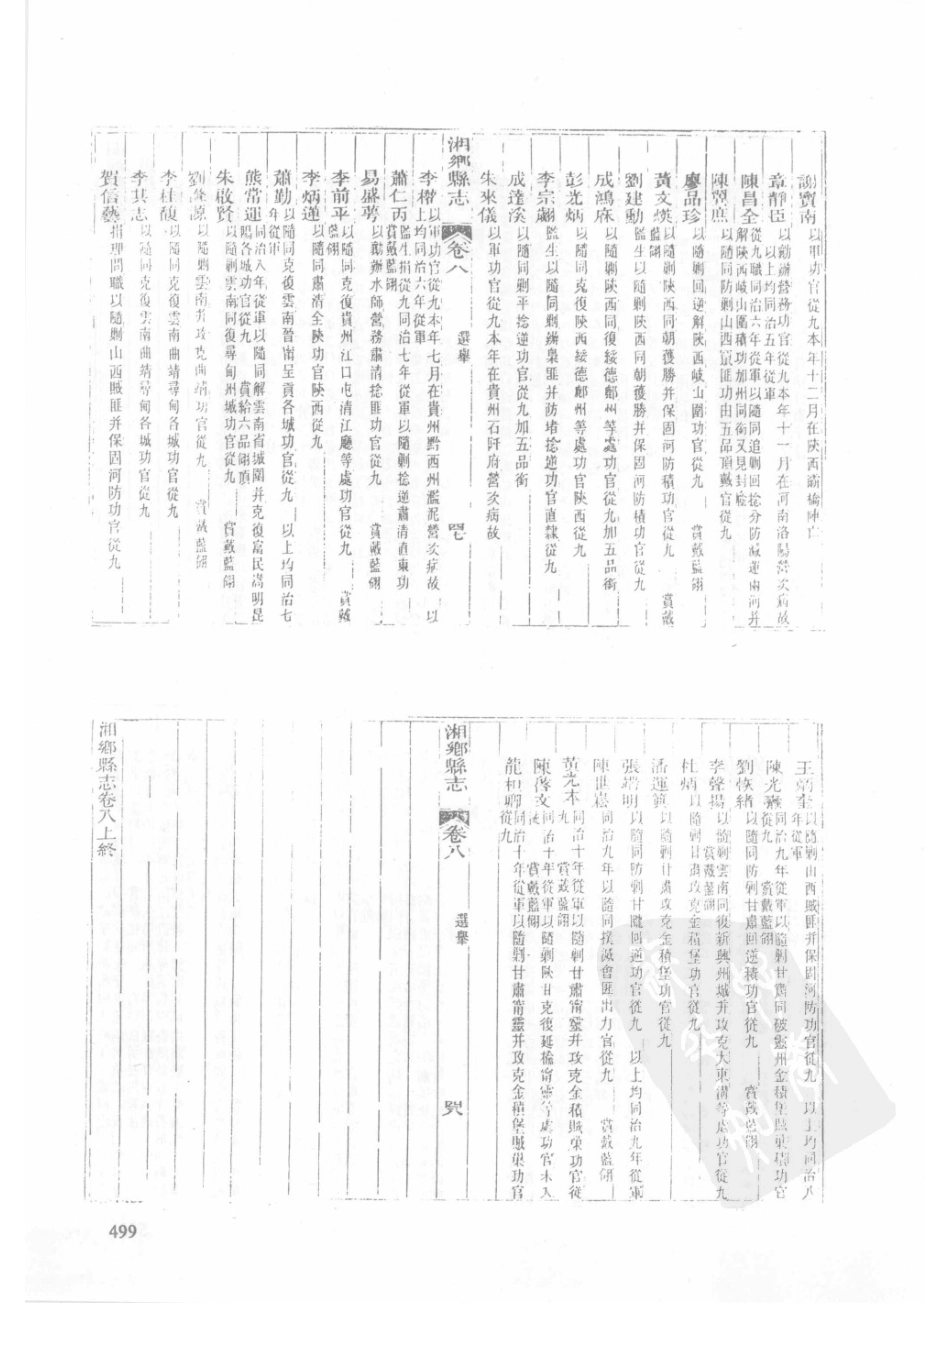 謝寶南以軍功官從九本年十二月在陝西灞橋陣亡
章靜臣以勦辦營務功官從九本年十一月在河南洛陽營次病故
以上均同治五年從軍
陳昌全從九職同治六年從軍以隨同追剿回捻分防滅運兩河并
解陝西岐山圍積功加州同銜又見封廕
以隨同防剿山西竄匪功由五品頂戴官從九
廖品珍以隨剿回逆解陝西岐山圍功官從九 賞戴藍翎
黃文煥以隨剿陝西同朝獲勝并保固河防積功官從九 賞戴
藍翎
劉建勳監生以隨剿陝西同朝獲勝并保固河防積功官從九
成鴻庥以隨剿陝西同復綏德鄜州等處功官從九加五品銜
彭光炳以隨同克復陝西綏德鄜州等處功官陝西從九
李宗翽監生以隨同剿辦梟匪并防堵捻逆功官直隸從九
成達溪以隨同剿平捻逆功官從九加五品銜
朱來儀以軍功官從九本年在貴州石阡府營次病故
湘鄉縣志 卷八 選舉
李楷以軍功官從九本年七月在貴州黔西州濫泥營次病故 以
上均同治六年從軍
蕭仁丙監生捐從九同治七年從軍以隨剿捻逆肅清直東功
賞戴藍翎
易盛蒡以勷辦水師營務肅清捻匪功官從九 賞戴藍翎
李前平以隨同克復貴州江口屯清江廳等處功官從九 賞戴
藍翎
李炳蓮以隨同肅清全陝功官陝西從九
蕭勤以隨同克復雲南晉甯呈貢各城功官從九 以上均同治七
年從軍
熊常運同治八年從軍以隨同解雲南省城圍并克復富民嵩明昆
陽各城功官從九 賞給六品翎頂
朱啟賢以隨剿雲南同復尋甸州城功官從九 賞戴藍翎
以隨剿雲南并攻克曲靖功官從九 賞戴藍翎
李桂馥以隨同克復雲南曲靖尋甸各城功官從九
李其志以隨同克復雲南曲靖尋甸各城功官從九
賀信藝捐理問職以隨剿山西賊匪并保固河防功官從九
王炳奎以隨剿山西賊匪并保固河防功官從九 以上均同治八
年從軍
同治九年從軍以隨剿甘肅同破靈州金積堡賊巢積功官
從九 賞戴藍翎
劉恢緒以隨同防剿甘肅回逆積功官從九 賞戴藍翎
李聲揚以隨剿雲南同復新興州城并攻克大東溝等處功官從九
賞戴藍翎
杜炳以隨剿甘肅攻克金積堡功官從九
以隨剿甘肅攻克金積堡功官從九
張端明以隨同防剿甘隴回逆功官從九 以上均同治九年從軍
同治九年以隨同撲滅會匪出力官從九 賞戴藍翎
黃光本同治十年從軍以隨剿甘肅甯靈并攻克金積賊巢功官從
九 賞戴藍翎
同治十年從軍以隨剿陝甘克復延榆甯靈等處功官未入
流 賞戴藍翎
龍和卿同治十年從軍以隨剿甘肅甯靈并攻克金積堡賊巢功官
從九
湘鄉縣志 卷八 選舉
湘鄉縣志卷八上終
499